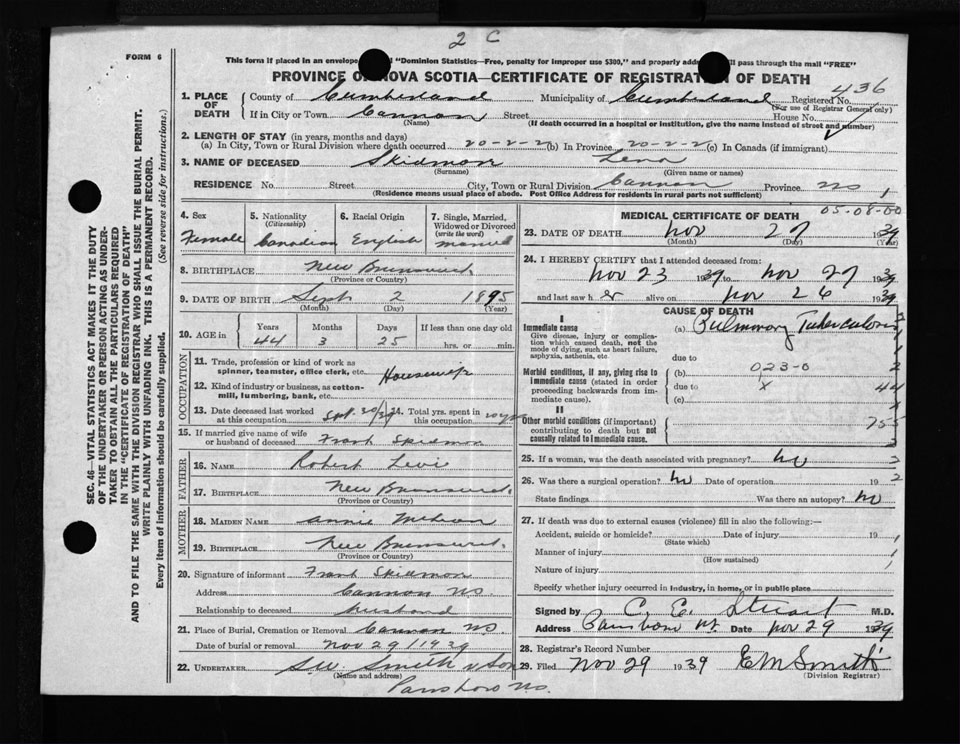 2 C
FORM 6
This form if placed in an envelope "Dominion Statistics—Free, penalty for improper use $300," and properly will pass through the mail "FREE"
PROVINCE OF NOVA SCOTIA—CERTIFICATE OF REGISTRATION OF DEATH
436
1. PLACE OF DEATH
County of Cumberland Municipality of Cumberland Registered No.
(For use of Registrar General only)
If in City or Town Street House No.
(Name) (If death occurred in a hospital or institution, give the name instead of street and number)
2. LENGTH OF STAY (in years, months and days)
(a) In City, Town or Rural Division where death occurred 20-2-2 (b) In Province 20-2-2 (c) In Canada (if immigrant)
3. NAME OF DECEASED Skidmore Lena
(Surname) (Given name or names)
RESIDENCE No. Street City, Town or Rural Division Province NS 1
(Residence means usual place of abode. Post Office Address for residents in rural parts not sufficient)
4. Sex 5. Nationality (Citizenship) 6. Racial Origin 7. Single, Married, Widowed or Divorced (write the word)
Female Canadian English Married
8. BIRTHPLACE New Brunswick
(Province or Country)
9. DATE OF BIRTH Sept 2 1895
(Month) (Day) (Year)
10. AGE in Years Months Days If less than one day old
44 3 25 hrs. or min.
OCCUPATION
11. Trade, profession or kind of work as spinner, teamster, office clerk, etc. Housewife
12. Kind of industry or business, as cotton-mill, lumbering, bank, etc.
13. Date deceased last worked at this occupation Sept. 20/39 14. Total yrs. spent in this occupation 20 yrs
15. If married give name of wife or husband of deceased Frank Skidmore
FATHER
16. NAME Robert
17. BIRTHPLACE New Brunswick
(Province or Country)
MOTHER
18. MAIDEN NAME Annie
19. BIRTHPLACE New Brunswick
(Province or Country)
20. Signature of informant Frank Skidmore
Address NS
Relationship to deceased husband
21. Place of Burial, Cremation or Removal NS.
Date of burial or removal Nov 29/1939
22. UNDERTAKER Smith & Son
(Name and address)
Parrsboro NS.
MEDICAL CERTIFICATE OF DEATH
05-08-00
23. DATE OF DEATH Nov 27 1939
(Month) (Day) (Year)
24. I HEREBY CERTIFY that I attended deceased from:
Nov 23 1939 to Nov 27 1939
and last saw her alive on Nov 26 1939
CAUSE OF DEATH
I
Immediate cause
Give disease, injury or complication which caused death, not the mode of dying, such as heart failure, asphyxia, asthenia, etc.
(a) Pulmonary Tuberculosis
due to
Morbid conditions, if any, giving rise to immediate cause (stated in order proceeding backwards from immediate cause).
(b) 023-0
due to x 44
(c)
II
Other morbid conditions (if important) contributing to death but not causally related to immediate cause.
755
25. If a woman, was the death associated with pregnancy? no
26. Was there a surgical operation? no Date of operation 19
State findings Was there an autopsy? no
27. If death was due to external causes (violence) fill in also the following:—
Accident, suicide or homicide? Date of injury 19
(State which)
Manner of injury
(How sustained)
Nature of injury
Specify whether injury occurred in industry, in home, or in public place
Signed by C. E. Stuart M.D.
Address Date Nov 29 1939
28. Registrar's Record Number
29. Filed Nov 29 1939 E M Smith
(Division Registrar)
SEC. 46—VITAL STATISTICS ACT MAKES IT THE DUTY
OF THE UNDERTAKER OR PERSON ACTING AS UNDER-
TAKER TO OBTAIN ALL THE PARTICULARS REQUIRED
IN THE "CERTIFICATE OF REGISTRATION OF DEATH"
AND TO FILE THE SAME WITH THE DIVISION REGISTRAR WHO SHALL ISSUE THE BURIAL PERMIT.
WRITE PLAINLY WITH UNFADING INK. THIS IS A PERMANENT RECORD.
Every item of information should be carefully supplied. (See reverse side for instructions.)